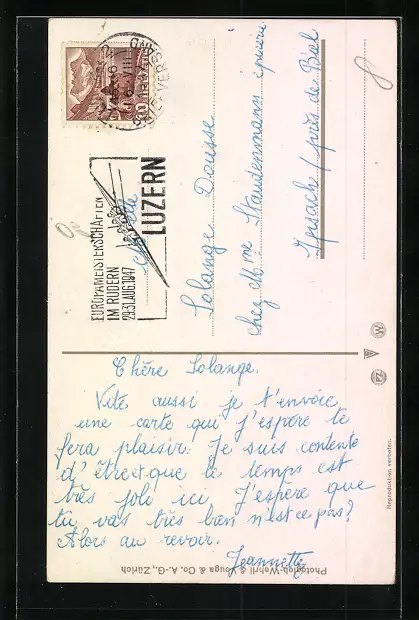 EUROPAMEISTERSCHAFTEN
IM RUDERN
29-31.AUG.1947
LUZERN
HELVETIA
Solange Dousse
chez Mme Staudenmann épicerie
Ipsach / près de Biel
Chère Solange.
Vite aussi je t'envoie
une carte qui j'espère te
fera plaisir. Je suis contente
d'être et que le temps est
très joli ici J'espère que
tu vas très bien n'est ce pas?
Alors au revoir.
Jeannette
Photoglob-Wehrli & Vouga & Co. A.-G., Zürich
Reproduktion verboten.
PZ
W